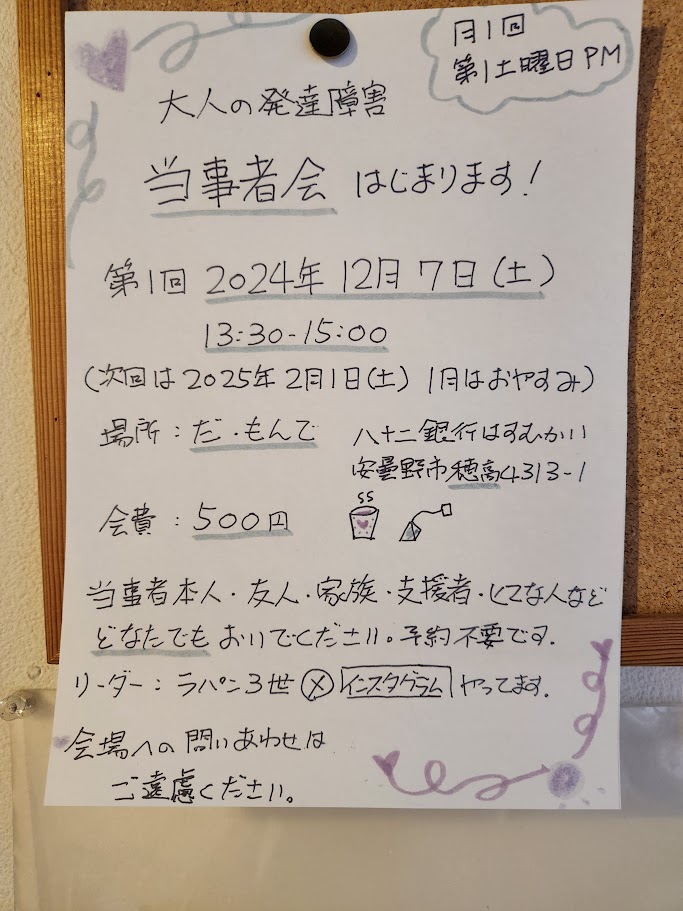 月1回
第1土曜日PM
大人の発達障害
当事者会 はじまります!
第1回 2024年 12月 7日(土)
13:30-15:00
(次回は 2025年 2月1日(土) 1月はおやすみ)
場所:だ・もんで 八十二銀行はすむかい
安曇野市穂高4313-1
会費:500円
当事者本人・友人・家族・支援者・ヒマな人など
どなたでも おいでください。予約不要です.
リーダー:ラパン3世 Ⓧ インスタグラム やってます.
会場への問いあわせは
ご遠慮ください。